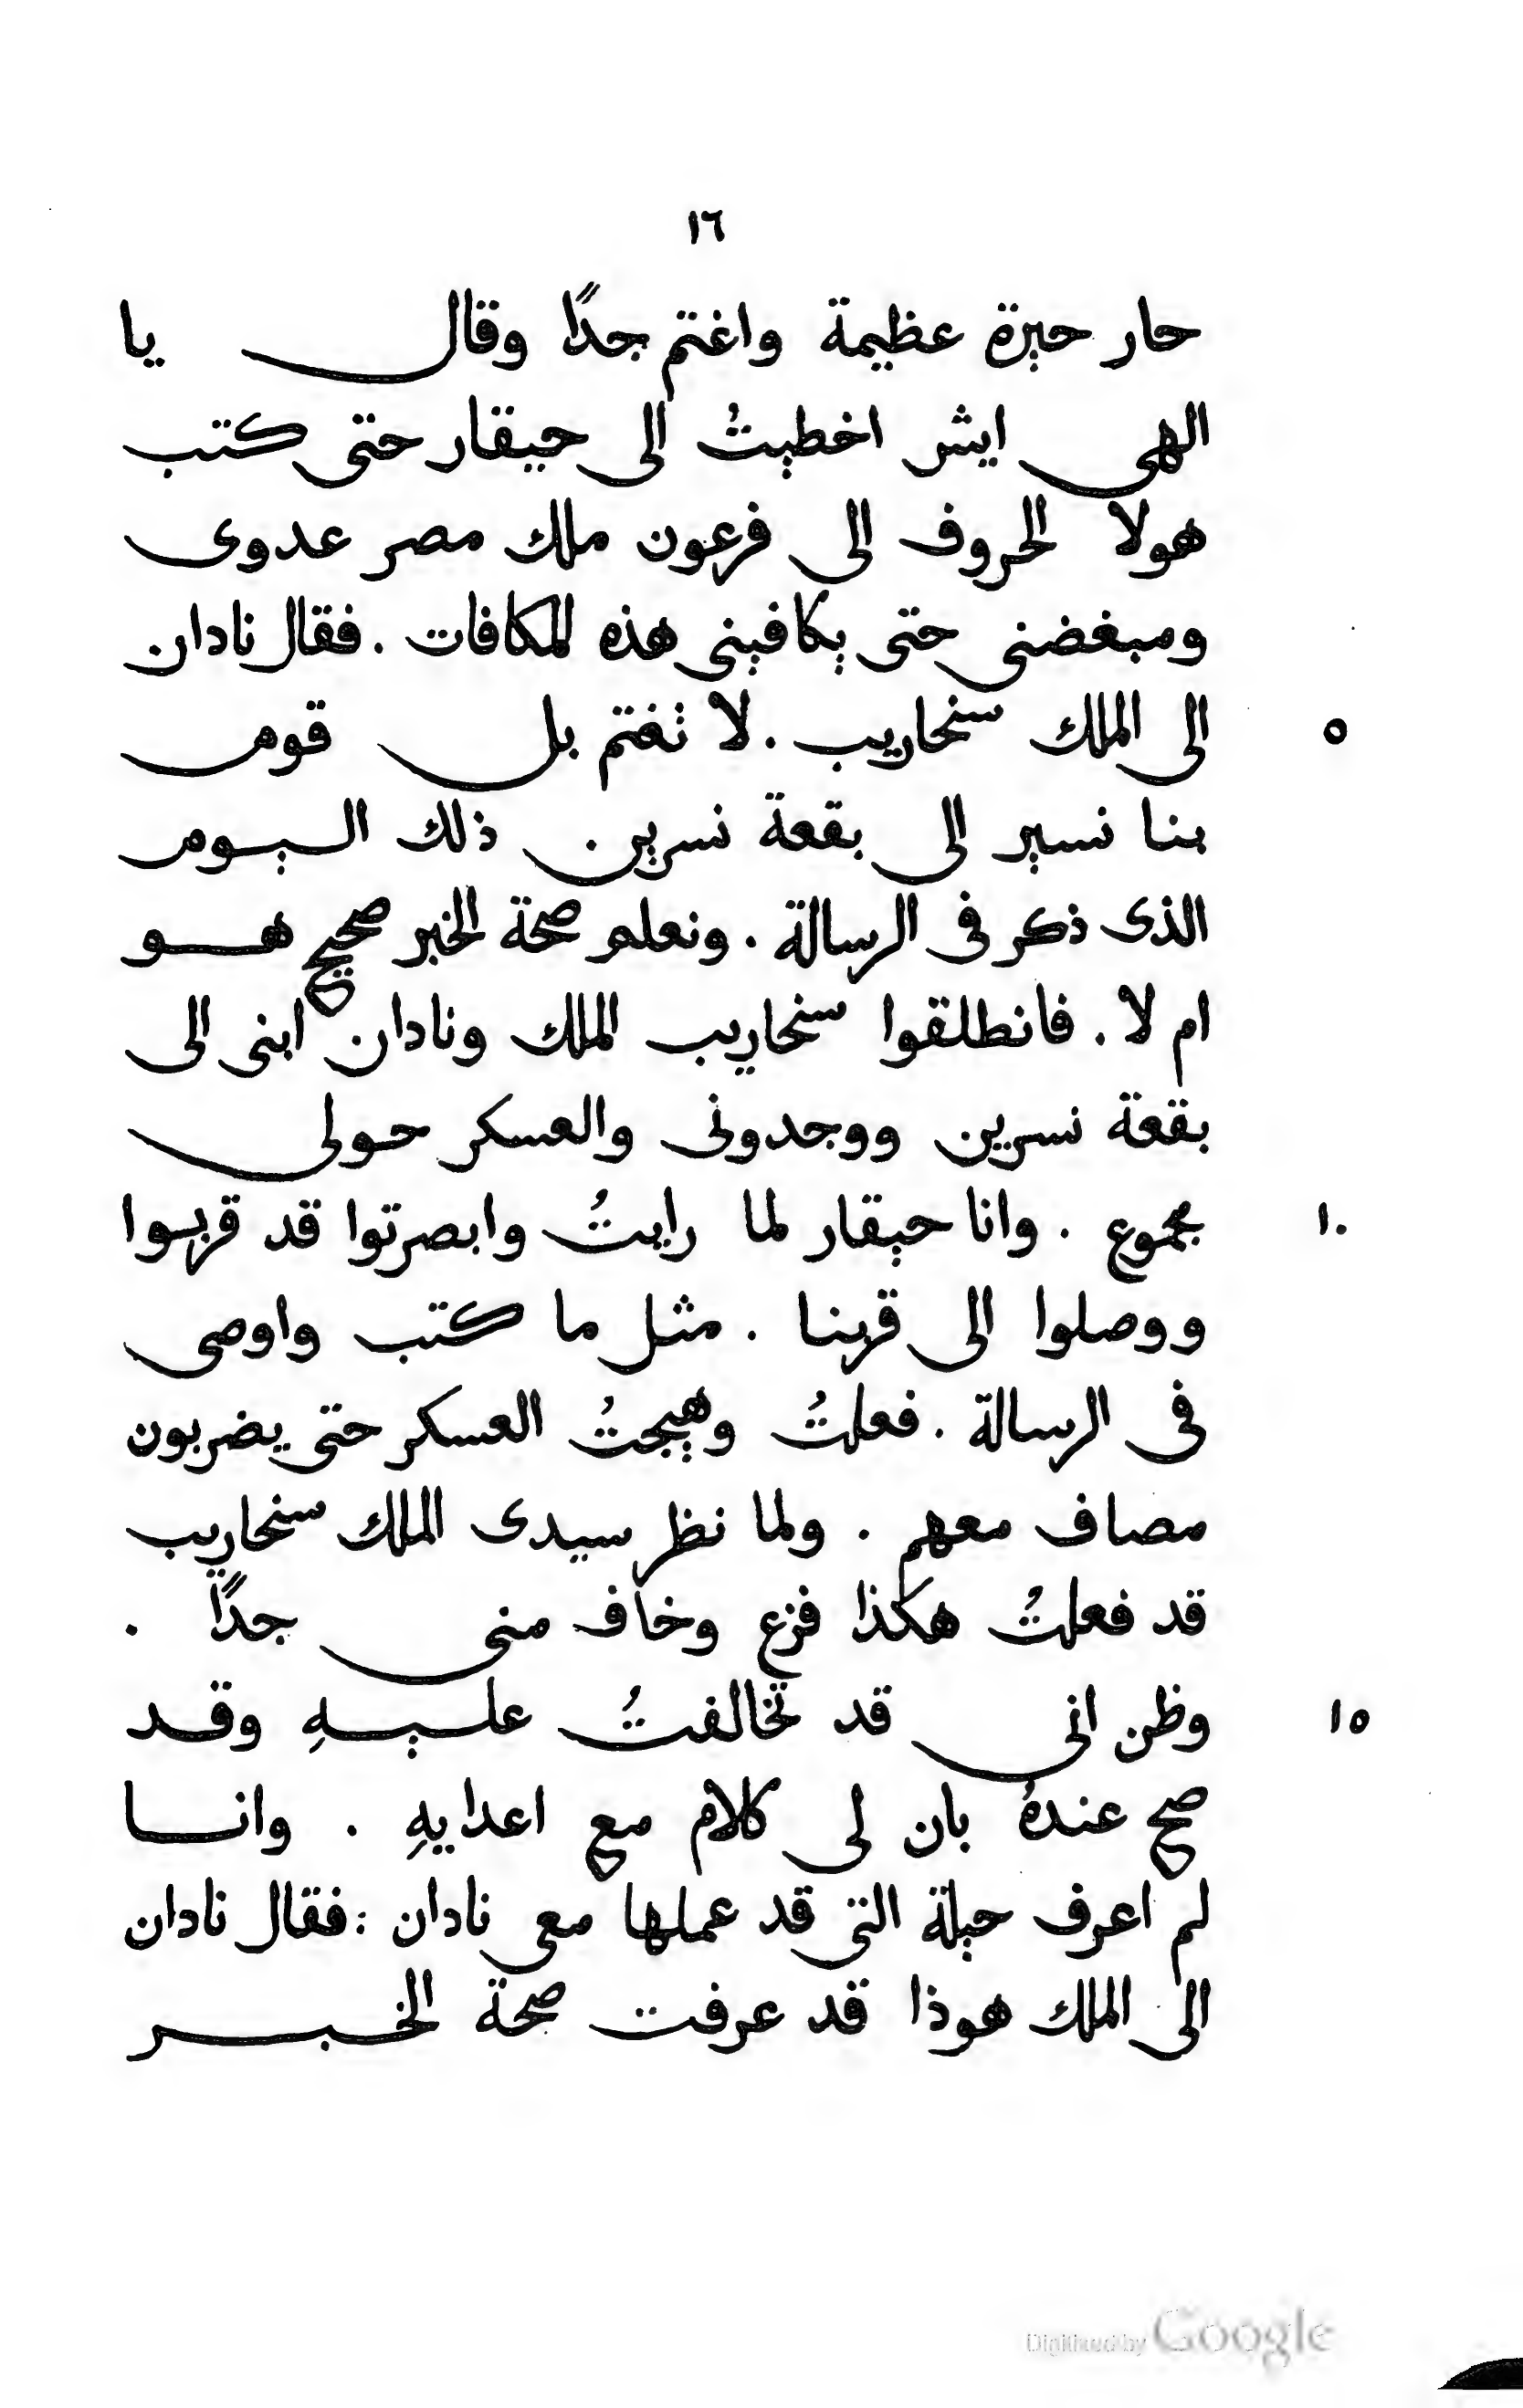 ١٦
حار حيرة عظيمة واغتم جدًا وقال يا
الهى ايش اخطيتُ الى حيقار حتى كتب
هولا الحروف الى فرعون ملك مصر عدوى
ومبغضنى حتى يكافينى هذه المكافات . فقال نادان
الى الملك سنحاريب . لا تغتم بل قوم
٥
بنا نسير الى بقعة نسرين ذلك اليوم
الذى ذكر فى الرسالة . ونعلم صحة الخبر صحيح هو
ام لا . فانطلقوا سنحاريب الملك ونادان ابنى الى
بقعة نسرين ووجدونى والعسكر حولى
مجموع . وانا حيقار لما رايتُ وابصرتوا قد قربوا
١٠
ووصلوا الى قربنا . مثل ما كتب واوصى
فى الرسالة . فعلتُ وهيجتُ العسكر حتى يضربون
مصاف معهم . ولما نظر سيدى الملك سنحاريب
قد فعلتُ هكذا فزع وخاف منى جدًا .
وظن انى قد تخالفتُ عليهِ وقد
١٥
صح عندهُ بان لى كلام مع اعدايهِ . وانا
لم اعرف حيلة التى قد عملها معى نادان : فقال نادان
الى الملك هوذا قد عرفت صحة الخبر
Digitized by Google